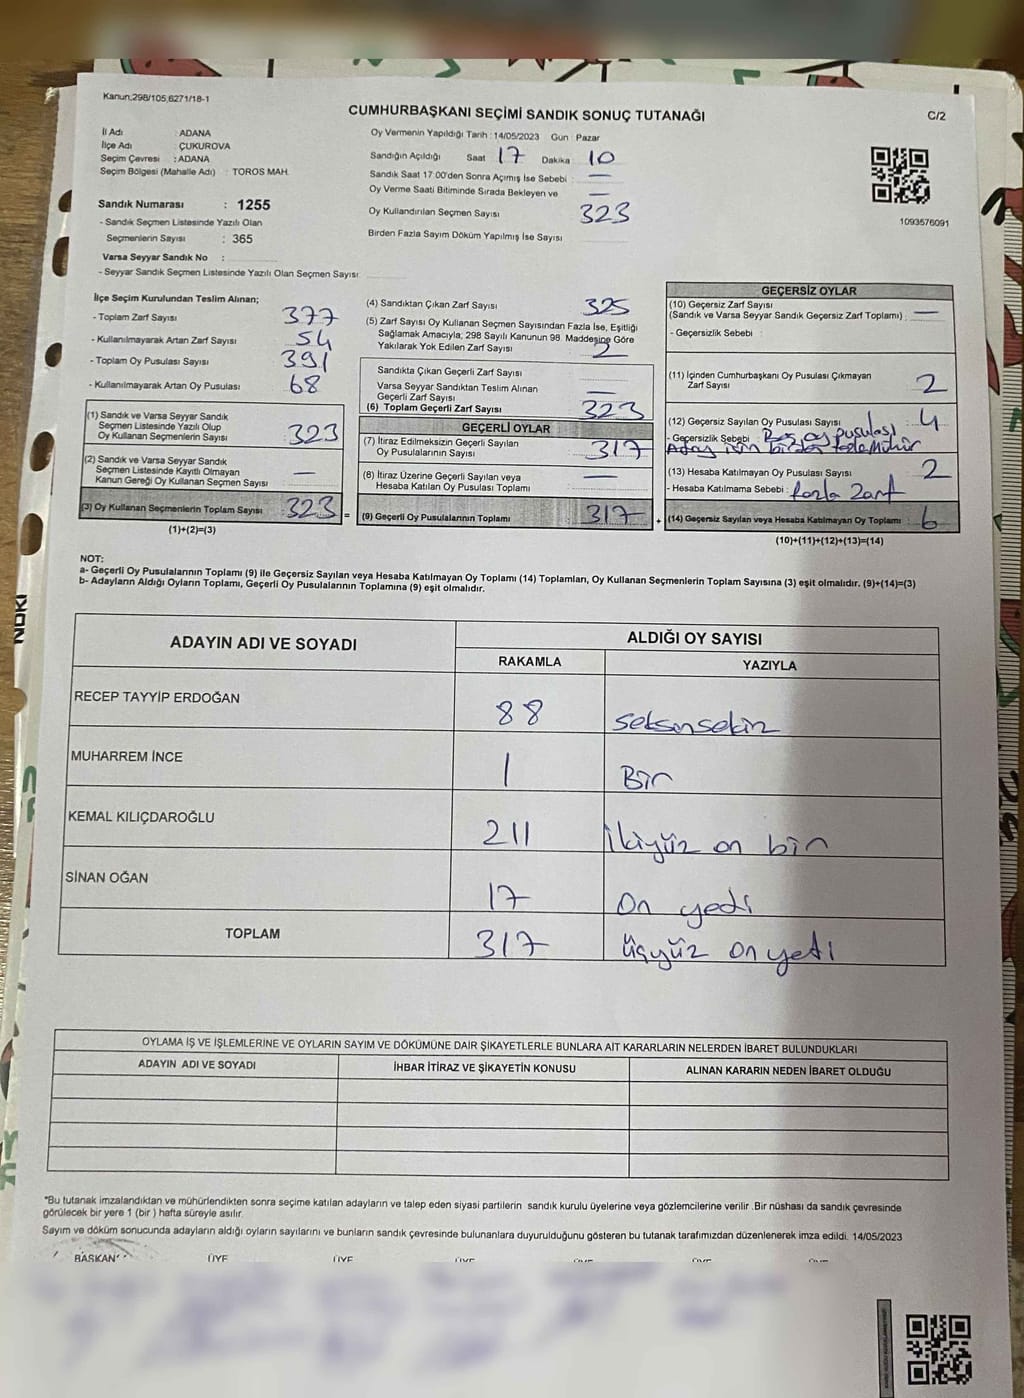 Kanun;298/105,6271/18-1
CUMHURBAŞKANI SEÇİMİ SANDIK SONUÇ TUTANAĞI
C/2
İl Adı : ADANA
İlçe Adı : ÇUKUROVA
Seçim Çevresi : ADANA
Seçim Bölgesi (Mahalle Adı) : TOROS MAH.
Sandık Numarası : 1255
- Sandık Seçmen Listesinde Yazılı Olan
Seçmenlerin Sayısı : 365
Varsa Seyyar Sandık No :
- Seyyar Sandık Seçmen Listesinde Yazılı Olan Seçmen Sayısı:
Oy Vermenin Yapıldığı Tarih : 14/05/2023 Gün : Pazar
Sandığın Açıldığı Saat 17 Dakika 10
Sandık Saat 17:00'den Sonra Açımış İse Sebebi : —
Oy Verme Saati Bitiminde Sırada Bekleyen ve —
Oy Kullandırılan Seçmen Sayısı 323
Birden Fazla Sayım Döküm Yapılmış İse Sayısı
1093576091
İlçe Seçim Kurulundan Teslim Alınan;
- Toplam Zarf Sayısı 377
- Kullanılmayarak Artan Zarf Sayısı 54
- Toplam Oy Pusulası Sayısı 391
- Kullanılmayarak Artan Oy Pusulası 68
(1) Sandık ve Varsa Seyyar Sandık
Seçmen Listesinde Yazılı Olup
Oy Kullanan Seçmenlerin Sayısı : 323
(2) Sandık ve Varsa Seyyar Sandık
Seçmen Listesinde Kayıtlı Olmayan
Kanun Gereği Oy Kullanan Seçmen Sayısı : —
(3) Oy Kullanan Seçmenlerin Toplam Sayısı : 323 =
(1)+(2)=(3)
(4) Sandıktan Çıkan Zarf Sayısı 325
(5) Zarf Sayısı Oy Kullanan Seçmen Sayısından Fazla İse, Eşitliği
Sağlamak Amacıyla; 298 Sayılı Kanunun 98. Maddesine Göre
Yakılarak Yok Edilen Zarf Sayısı 2
Sandıkta Çıkan Geçerli Zarf Sayısı
Varsa Seyyar Sandıktan Teslim Alınan
Geçerli Zarf Sayısı —
(6) Toplam Geçerli Zarf Sayısı 323
GEÇERLİ OYLAR
(7) İtiraz Edilmeksizin Geçerli Sayılan
Oy Pusulalarının Sayısı 317
(8) İtiraz Üzerine Geçerli Sayılan veya
Hesaba Katılan Oy Pusulası Toplamı —
(9) Geçerli Oy Pusulalarının Toplamı : 317 +
GEÇERSİZ OYLAR
(10) Geçersiz Zarf Sayısı
(Sandık ve Varsa Seyyar Sandık Geçersiz Zarf Toplamı) : —
- Geçersizlik Sebebi :
(11) İçinden Cumhurbaşkanı Oy Pusulası Çıkmayan
Zarf Sayısı 2
(12) Geçersiz Sayılan Oy Pusulası Sayısı : 4
- Geçersizlik Sebebi : Boş oy pusulası
Aday için birden fazla Mühür
(13) Hesaba Katılmayan Oy Pusulası Sayısı 2
- Hesaba Katılmama Sebebi : fazla Zarf
(14) Geçersiz Sayılan veya Hesaba Katılmayan Oy Toplamı : 6
(10)+(11)+(12)+(13)=(14)
NOT:
a- Geçerli Oy Pusulalarının Toplamı (9) ile Geçersiz Sayılan veya Hesaba Katılmayan Oy Toplamı (14) Toplamları, Oy Kullanan Seçmenlerin Toplam Sayısına (3) eşit olmalıdır. (9)+(14)=(3)
b- Adayların Aldığı Oyların Toplamı, Geçerli Oy Pusulalarının Toplamına (9) eşit olmalıdır.
ADAYIN ADI VE SOYADI
ALDIĞI OY SAYISI
RAKAMLA YAZIYLA
RECEP TAYYİP ERDOĞAN 88 seksensekiz
MUHARREM İNCE 1 Bir
KEMAL KILIÇDAROĞLU 211 ikiyüz on bir
SİNAN OĞAN 17 On yedi
TOPLAM 317 üçyüz on yedi
OYLAMA İŞ VE İŞLEMLERİNE VE OYLARIN SAYIM VE DÖKÜMÜNE DAİR ŞİKAYETLERLE BUNLARA AİT KARARLARIN NELERDEN İBARET BULUNDUKLARI
ADAYIN ADI VE SOYADI İHBAR İTİRAZ VE ŞİKAYETİN KONUSU ALINAN KARARIN NEDEN İBARET OLDUĞU
"Bu tutanak imzalandıktan ve mühürlendikten sonra seçime katılan adayların ve talep eden siyasi partilerin sandık kurulu üyelerine veya gözlemcilerine verilir .Bir nüshası da sandık çevresinde
görülecek bir yere 1 (bir ) hafta süreyle asılır.
Sayım ve döküm sonucunda adayların aldığı oyların sayılarını ve bunların sandık çevresinde bulunanlara duyurulduğunu gösteren bu tutanak tarafımızdan düzenlenerek imza edildi. 14/05/2023
BAŞKAN ÜYE ÜYE ÜYE ÜYE ÜYE ÜYE